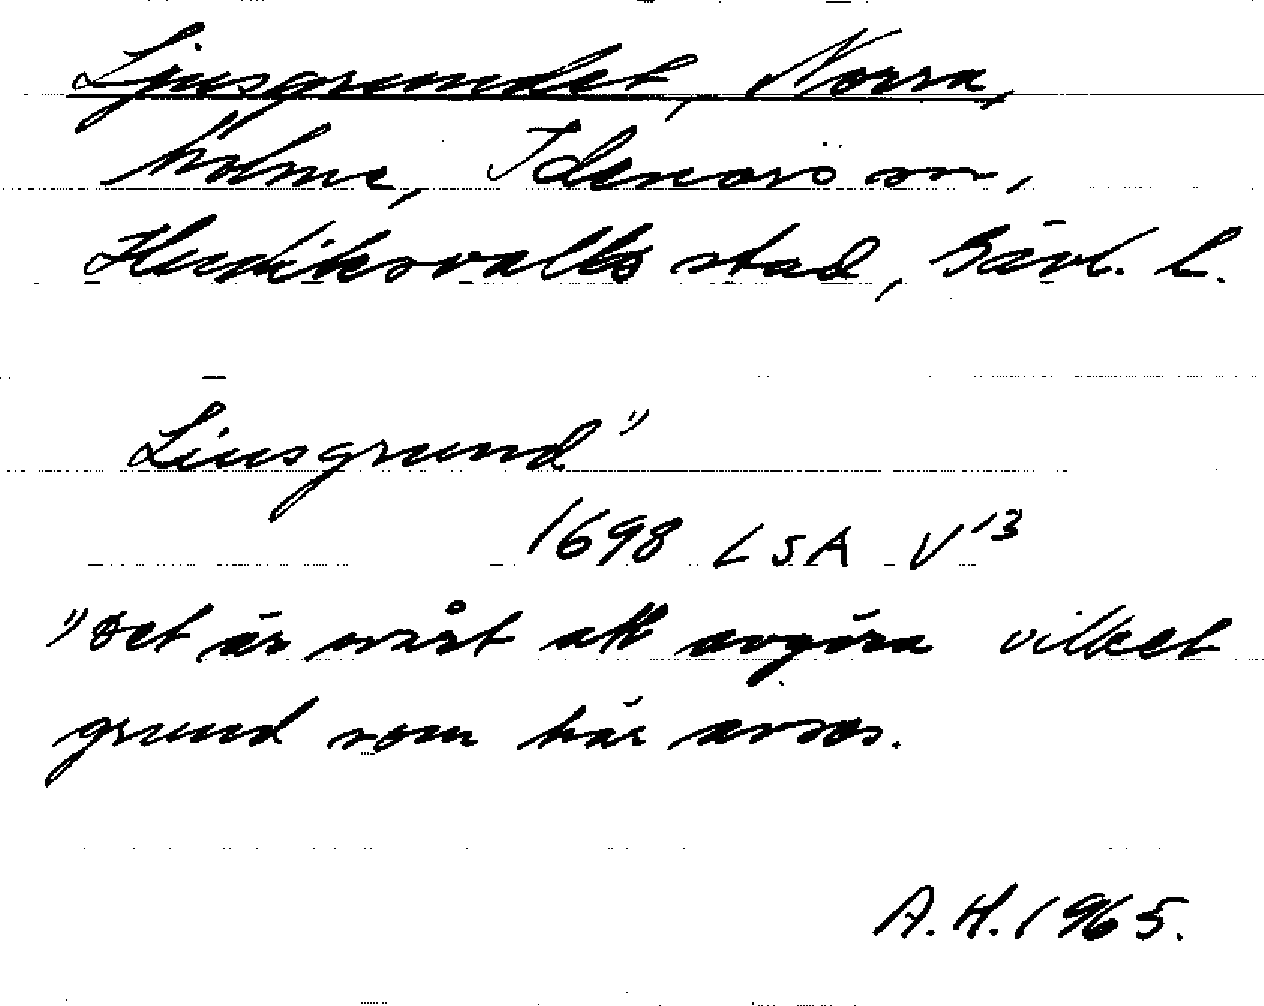 Ljusgrundet, Norra,
holme, Idenors sn,
Hudiksvalls stad, Gävl. l.
Liusgrund"
1698 LSA V 13
"Det är svårt att avgöra vilket
grund som här avses.
A. H. 1965.